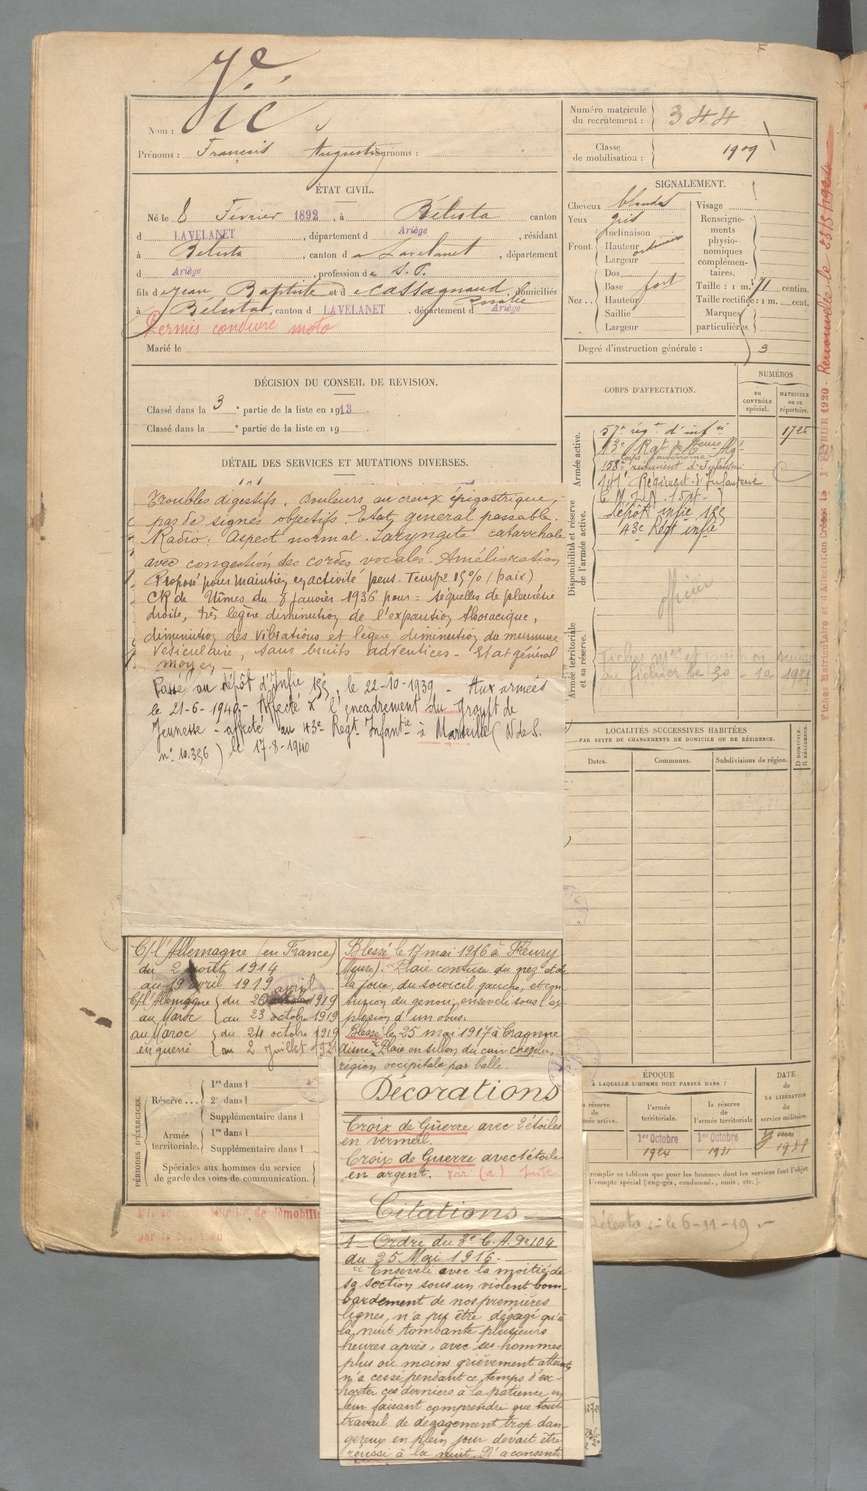 Vié
Nom :
Prénoms : François Augustin Surnoms :
Numéro matricule
du recrutement : 344
Classe
de mobilisation : 1909
ÉTAT CIVIL.
Né le 8 Février 1892, à Bélesta canton
d LAVELANET, département d Ariège, résidant
à Bélesta, canton de Lavelanet, département
d Ariège, profession de S. P.
fils de Jean Baptiste et de Cassagnaud Rosalie domiciliés
à Bélesta, canton d LAVELANET, département d Ariège
Permis conduire moto
Marié le
SIGNALEMENT.
Cheveux blonds
Yeux gris
Front
Inclinaison
Hauteur ordinaire
Largeur
Nez
Dos
Base fort
Hauteur
Saillie
Largeur
Visage
Renseigne-
ments
physio-
nomiques
complémen-
taires.
Taille : 1 m. 71 centim.
Taille rectifiée : 1 m. cent.
Marques
particulières
Degré d'instruction générale : 3
DÉCISION DU CONSEIL DE REVISION.
Classé dans la 3e partie de la liste en 1913
Classé dans la e partie de la liste en 19
DÉTAIL DES SERVICES ET MUTATIONS DIVERSES.
CORPS D'AFFECTATION.
NUMÉROS
au
CONTRÔLE
spécial.
MATRICULE
ou au
répertoire.
Armée active.
57e régt d'infie 1725
158e régiment d'Infanterie
141e Régiment d'Infanterie
Disponibilité et réserve
de l'armée active.
Dépôt Infie 155
43e Régt infie
officier
Armée territoriale
et sa réserve.
Troubles digestifs. Douleurs au creux épigastrique,
pas de signes objectifs. État général passable.
Radio : Aspect normal. Laryngite catarrhale
avec congestion des cordes vocales. Amélioration
Proposé pour maintien en activité pens. Temp. 15% (paix)
CR de Nîmes du 7 janvier 1936 pour = séquelles de pleurésie
droite, très légère diminution de l'expansion thoracique,
diminution des vibrations et légère diminution du murmure
vésiculaire, sans bruits adventices - Etat général
moyen -
Passé au dépôt d'Infie 155, le 22-10-1939 - Aux armées
le 21-6-1940 - Affecté à l'encadrement du Groupt de
Jeunesse - affecté au 43e Régt Infantie à Marseille (N de S.
n° 10.356) le 17-8-1940
LOCALITÉS SUCCESSIVES HABITÉES
PAR SUITE DE CHANGEMENTS DE DOMICILE OU DE RÉSIDENCE.
Dates.
Communes.
Subdivisions de région.
D DOMICILE.
R RÉSIDENCE.
C/ l'Allemagne (en France)
du 2 août 1914
au 19 avril 1919
C/ l'Allemagne du 20 avril 1919
au Maroc au 23 octobre 1919
au Maroc du 24 octobre 1919
en guerre au 2 juillet 1921
Blessé le 17 mai 1916 à Fleury
(Meuse). Plaie contuse du nez et de
la joue, du sourcil gauche, et con
tusion du genou, enseveli sous l'ex
plosion d'un obus.
Blessé le 25 mai 1917 à Craonne
Aisne. Plaie en sillon du cuir chevelu,
région occipitale par balle.
PÉRIODES D'EXERCICES.
Réserve...
1re dans l
2e dans l
Supplémentaire dans l
Armée
territoriale.
1re dans l
Supplémentaire dans l
Spéciales aux hommes du service
de garde des voies de communication.
ÉPOQUE
À LAQUELLE L'HOMME DOIT PASSER DANS :
l'armée
territoriale.
la réserve
de l'armée territoriale
DATE
de
LA LIBÉRATION
du
service militaire.
1er Octobre
1924
1er Octobre
1931
Bélesta :- le 6-11-19 -
Décorations
Croix de Guerre avec 2 étoiles
en vermeil.
Croix de Guerre avec 1 étoile
en argent. voir (a) suite
Citations
1 - Ordre du 3e C.A. No 104
du 25 Mai 1916 -
"Enseveli avec la moitié de
sa section sous un violent bom-
bardement de nos premières
lignes, n'a pu être dégagé qu'à
la nuit tombante plusieurs
heures après, avec ses hommes
plus ou moins grièvement atteints
n'a cessé pendant ce temps d'ex-
horter ces derniers à la patience en
leur faisant comprendre que tout
travail de dégagement trop dan-
gereux en plein jour devait être
réussi à la nuit. N'a consenti